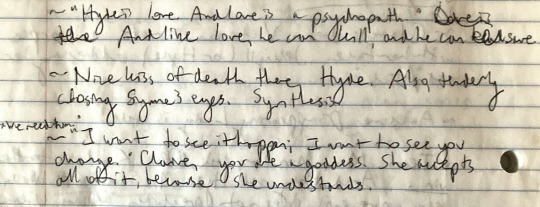 ~ "Hyde is love. And love is a psychopath."
And like love, he can kill, and he can
~ Nice kiss of death there, Hyde. Also tenderly
closing Syme's eyes. Synthesis
"we need him"
~ "I want to see it happen; I want to see you
change." Claire, you are a goddess. She accepts
all of it, because she understands.